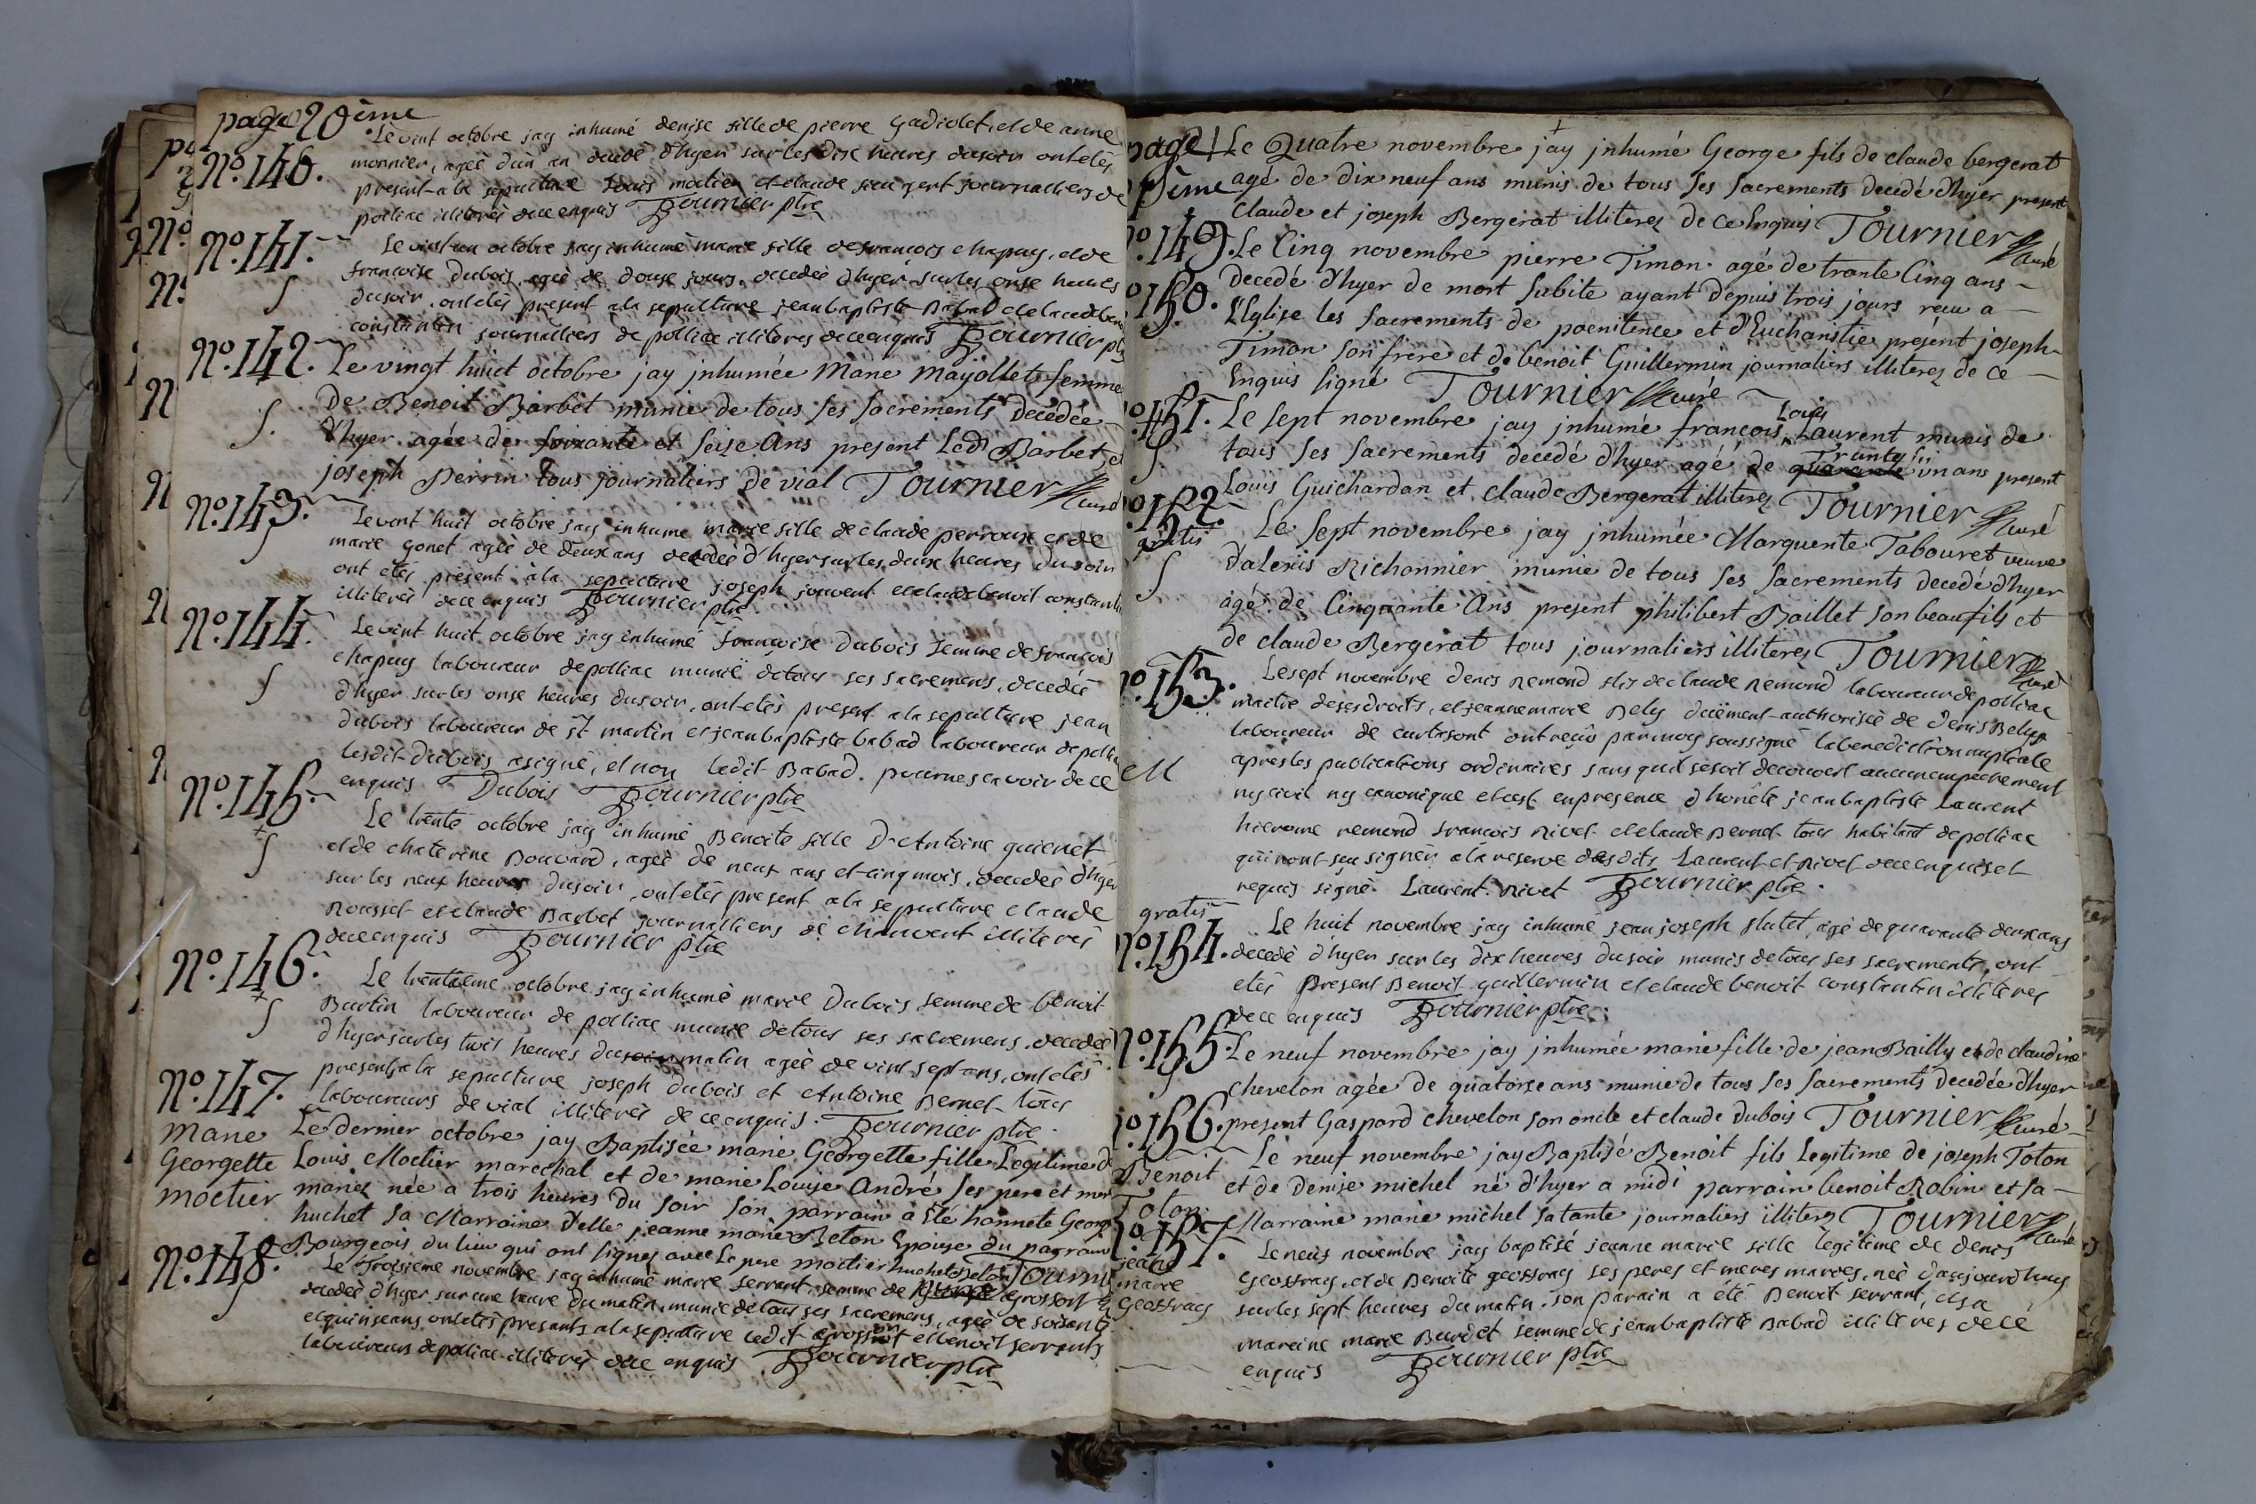 page 20ème
Le vint octobre jay inhumé denise fille de pierre Gadiolet, et de anne
No. 140. monnier, ageè dun an decedé d'hyer sur les dix heures du soir ont eteś
present a la sepulture Louis moctier et claude journalliers de
polliac illiterés de ce enquis Tournier ptre
No. 141. Le vint un octobre jay inhumé marie fille de francois chapuy, et de
francoise Dubois, ageè de douse jours, decedeè d'hyer sur les onse heures
du soir, ont eteś present a la sepulture jean baptiste Babad et claude benoit
constantin journalliers de polliac illiteres de ce enquis Tournier ptre
No. 142. Le vingt huict octobre jay jnhumée Marie Mayollet femme
S. De Benoit Barbet munie de tous ses sacrements decedée
d'hyer agée de soixante et seise ans present Led. Barbet, et
joseph Perrin tous journaliers de vial Tournier Curé
No. 143. Le vent huit octobre jay inhumé marie fille de claude perroux et de
S marie gonet ageè de deux ans decedeè d'hyer sur les deux heures du soir
ont eteś present à la sepulture joseph jouvent et claude benoit constantin
illiterés de ce enquis Tournier ptre
No. 144. Le vint huit octobre jay inhumé françoise Dubois femme de françois
S chapuy laboureur de polliac munië de tous ses sacremens, decedeè
d'hyer sur les onse heures du soir, ont eteś present a la sepulture jean
dubois laboureur de st martin et jean baptiste babad laboureur de polliac
ledit Dubois a signé, et non ledit Babad. pour ne scavoir de ce
enquis Dubois Tournier ptre
No. 145. Le trente octobre jay inhumé Benoite fille D'Antoine quienet
+ S et de chaterine Bouvard, ageè de neuf ans et cinq mois, decedeè d'hyer
sur les neuf heures du soir, ont eteś present a la sepulture claude
Rousset et claude Barbet journalliers de chauvent illiterés
de ce enquis Tournier ptre
No. 146. Le trentieme octobre jay inhumé marie Dubois femme de benoit
+ S Burtin laboureur de polliac munie de tous ses sacremens, decedeè
d'hyer sur les trois heures du soir matin ageè de vint sept ans, ont eteś
presents a la sepulture joseph Dubois et Antoine Bernet tous
laboureurs de vial illiterés de ce enquis. Tournier ptre.
No. 147. Le dernier octobre jay Baptisée marie Georgette fille Legitime de
Marie Louis Moctier marechal et de marie Louise André ses pere et mere
Georgette mariez née a trois heures du soir son parrain a été honnete George
moctier huchet sa Marraine d'elle jeanne marie Belon Epouse du parrain
Bourgeois du lieu qui ont signez avec Le pere moctier huchet Belon Tournier
No. 148. Le troisieme novembre jay inhumé marie serrant femme de George Grossort
S decedeè d'hyer sur une heure du matin munie de tous ses sacremens, ageè de soisante
et quinse ans, ont eteś presants a la sepulture ledit et benoit serrant
laboureurs de polliac illiterés de ce enquis Tournier ptre
page
Le Quatre novembre jay jnhumé George fils de claude bergerat
agé de dix neuf ans munis de tous ses sacrements decedé d'hyer present
Claude et joseph Bergerat illiterez de ce Enquis Tournier Curé
No. 149. Le Cinq novembre pierre Timon agé de trante Cinq ans
No. 150. decedé d'hyer de mort subite ayant depuis trois jours recu a
L'Eglise les sacrements de poenitence et d'Eucharistie présent joseph
Timon son frere et de benoit Guillermin journaliers illiterez de ce
Enquis signé Tournier Curé
No. 151. Le sept novembre jay jnhumé françois Louis Laurent munis de
S tous ses sacrements decedé d'hyer agé de quarante Trante un ans present
Louis Guichardan et claude Bergerat illiterez Tournier Curé
No. 152. Le sept novembre jay jnhumée Marguerite Tabouret veuve
gratis D'alexis Richonnier munie de tous ses sacrements decedé d'hyer
S agé de Cinquante ans present philibert Baillet son beaufils et
de claude Bergerat tous journaliers illiterés Tournier Curé
No. 153. Le sept novembre denis Remond fils de claude Remond laboureur de polliac
maitre de ses droits, et jeanne marie Bely duëment authorisée de denis Bely
laboureur de curtasont ont reçu par moy soussigné la benediction nuptiale
M apres les publications ordinaires sans quil se soit decouvert aucun empechement
ny civil ny canonique et cest en presence d'honête jean baptiste Laurent
hierome remond francois Rivet et claude Bernet tous habitant de polliac
qui nont sçu signer à la reserve desdits Laurent et Rivet de ce enquis et
requis signé. Laurent. Rivet Tournier ptre.
gratis
No. 154. Le huit novembre jay inhumé jean joseph flutet, agé de quarante deux ans
decedé d'hyer sur les dix heures du soir munis de tous ses sacrements, ont
eteś present Benoit guillermin et claude benoit constantin illiteres
de ce enquis Tournier ptre.
No. 155. Le neuf novembre jay jnhumée marie fille de jean Bailly et de claudine
S chevelon agée de quatorse ans munie de tous ses sacrements decedée d'hyer
present Gaspard chevelon son oncle et claude Dubois Tournier Curé
No. 156. Le neuf novembre jay Baptisé Benoit fils Legitime de joseph Toton
Benoit et de Denise michel né d'hyer a midi parrain benoit Robin et sa
Toton Marraine marie michel sa tante journaliers illiterz Tournier Curé
No. 157. Le neuf novembre jay baptisé jeanne marie fille legitime de denis
jeane geoffray, et de Benoite geoffray ses peres et meres mariés, neè d'aujourd'huy
marie sur les sept heures du matin. son parain a été Benoit serrant, et sa
Geoffray mareine marie Burdet femme de jean baptiste Babad illiteres de ce
enquis Tournier ptre